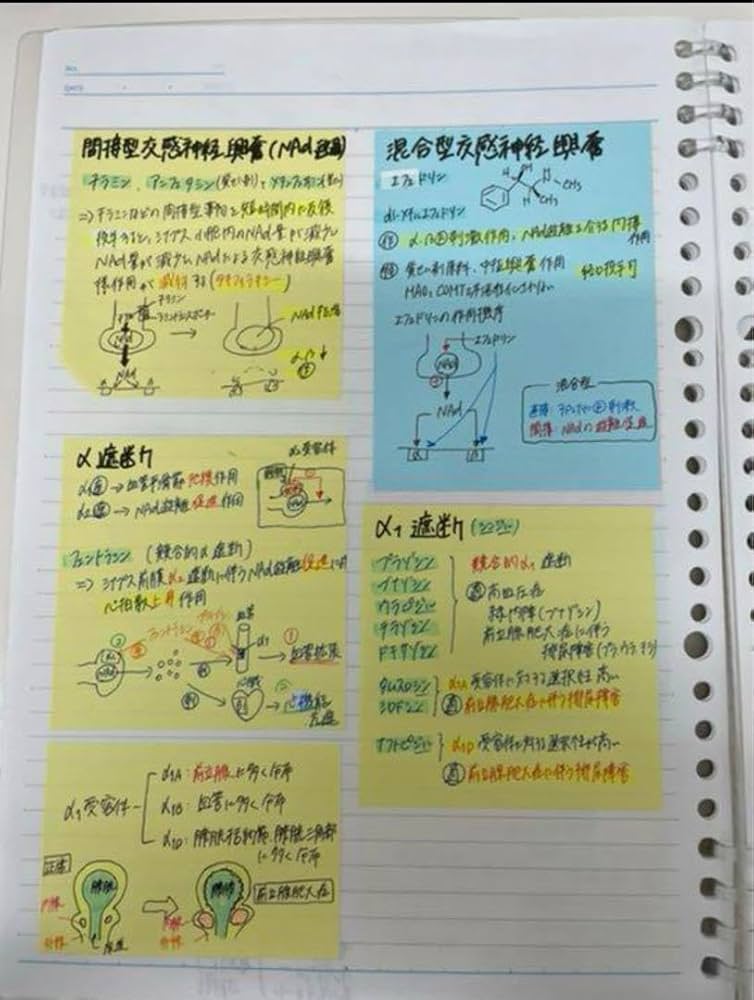 No.
DATE
間接型交感神経興奮(NAd遊離)
チラミン、アンフェタミン(覚せい剤)、メタンフェタミン
⇒チラミンなどの間接型薬物を短時間内に反復
投与すると、シナプス小胞内のNAd量が減少し
NAd量が減少し、NAdによる交感神経興奮
様作用が減弱する(タキフィラキシー)
チラミン
アミントランスポーター
NAd
NAd
α、β
混合型交感神経興奮
エフェドリン
OH
H
N
CH3
CH3
H
dl-メチルエフェドリン
作 α、β受刺激作用、NAd遊離を介する間接
作用
覚せい剤原料、中枢興奮作用
経口投与可
MAO、COMT
エフェドリンの作用機序
エフェドリン
NAd
①
NAd
α
β
混合型
直接:
間接:NAdの遊離促進
α遮断薬
α1遮→血管平滑筋弛緩作用
α2遮→NAd遊離促進作用
α2受容体
NAd
フェントラミン (競合的α遮断)
⇒シナプス前膜α2遮断に伴うNAd遊離促進
心拍数上昇作用
フェントラミン
血管
α2
NAd
α1
①
血管拡張
心臓
β1
②
心機能
亢進
α1遮断薬
プラゾシン
ブナゾシン
ウラピジル
テラゾシン
ドキサゾシン
競合的α1遮断
適 高血圧症
緑内障(ブナゾシン)
前立腺肥大症に伴う
排尿障害(プラ、ウラ、テラ)
タムスロシン
シロドシン
α1A受容体に対する選択性高い
適 前立腺肥大症に伴う排尿障害
ナフトピジル
α1D受容体に対する選択性が高い
適 前立腺肥大症に伴う排尿障害
α1受容体
α1A:前立腺に多く分布
α1B:血管に多く分布
α1D:膀胱括約筋、膀胱三角部
に多く分布
正常
膀胱
内腺
外腺
尿道
膀胱
内腺
外腺
前立腺肥大症